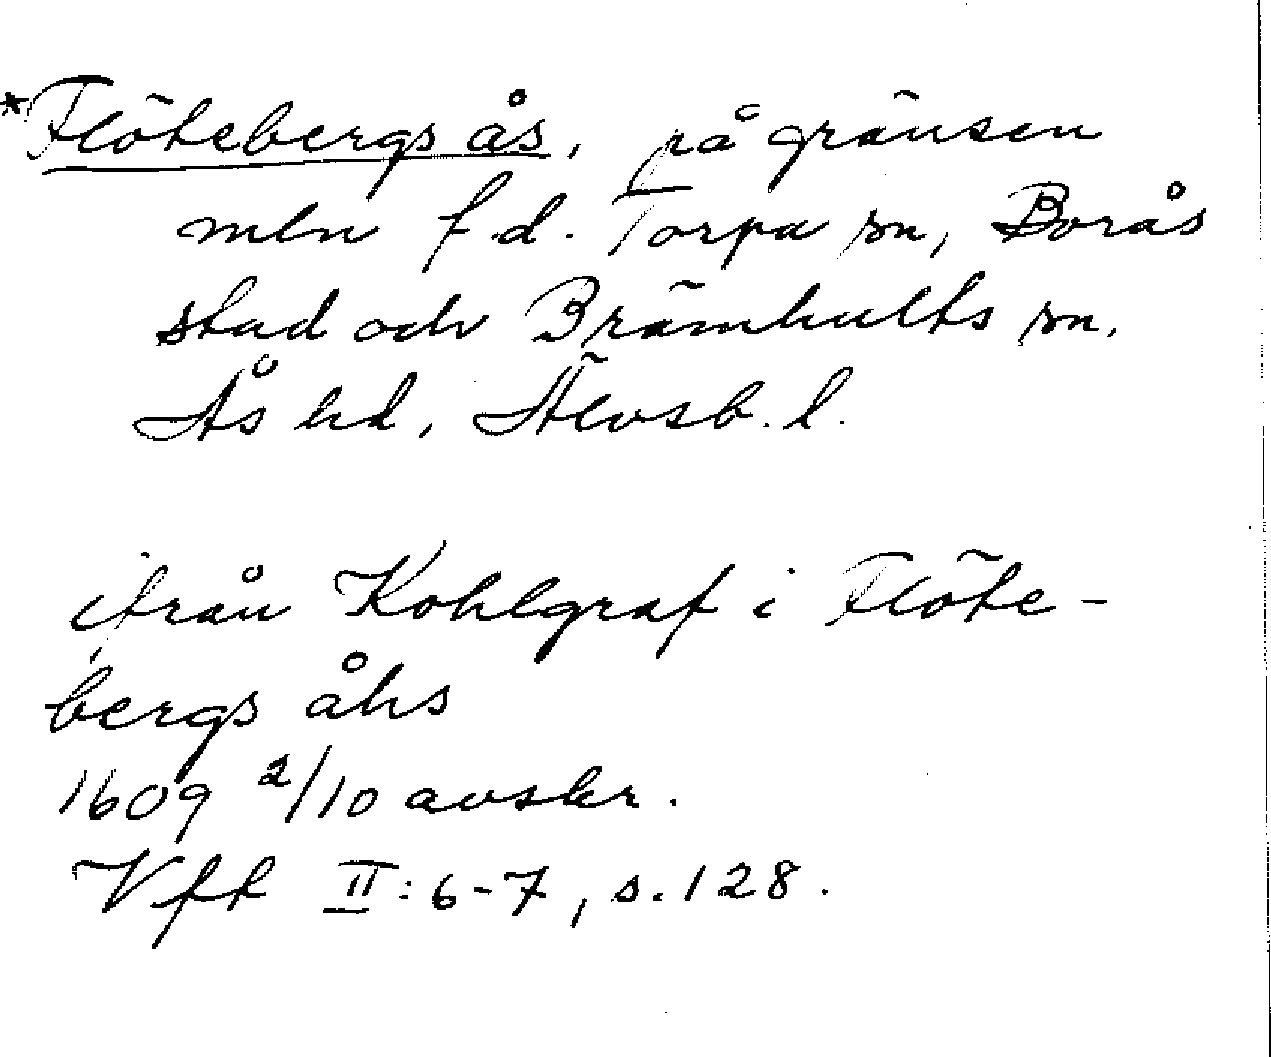 *Flötebergs ås, på gränsen
mln f.d. Torpa sn, Borås
stad och Brämhults sn.
Ås hd, Älvsb. l.
ifrån Kohlgraf i Flöte-
bergs åhs
1609 2/10 avskr.
Vfft II: 6-7, s. 128.